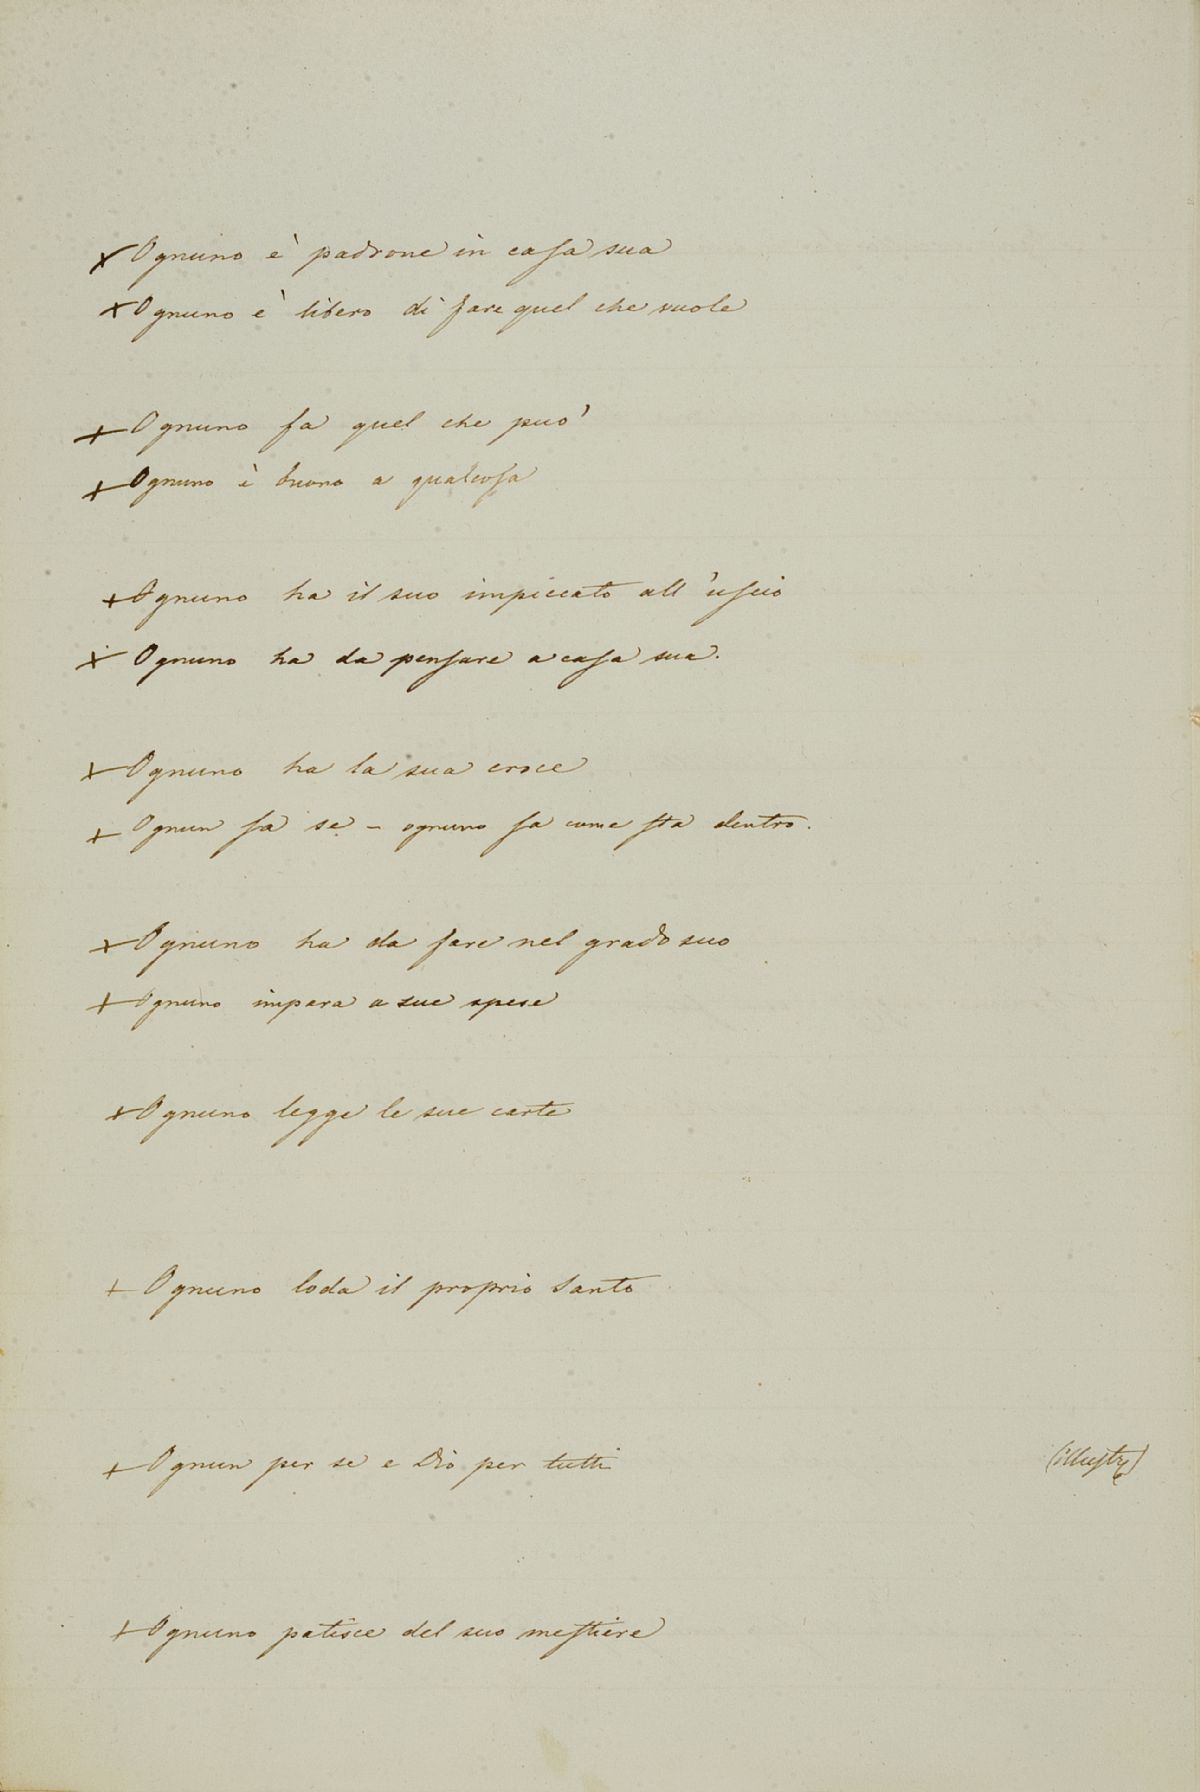 + Ognuno è padrone in casa sua
+ Ognuno è libero di fare quel che vuole
+ Ognuno fa quel che può
+ Ognuno è buono a qualcosa
+ Ognuno ha il suo impiccato all'uscio
+ Ognuno ha da pensare a casa sua.
+ Ognuno ha la sua croce
+ Ognun sa se – ognuno sa come sta dentro.
+ Ognuno ha da fare nel grado suo
+ Ognuno impara a sue spese
+ Ognuno legge le sue carte
+ Ognuno loda il proprio Santo
+ Ognun per se e Dio per tutti (illustr)
+ Ognuno patisce del suo mestiere